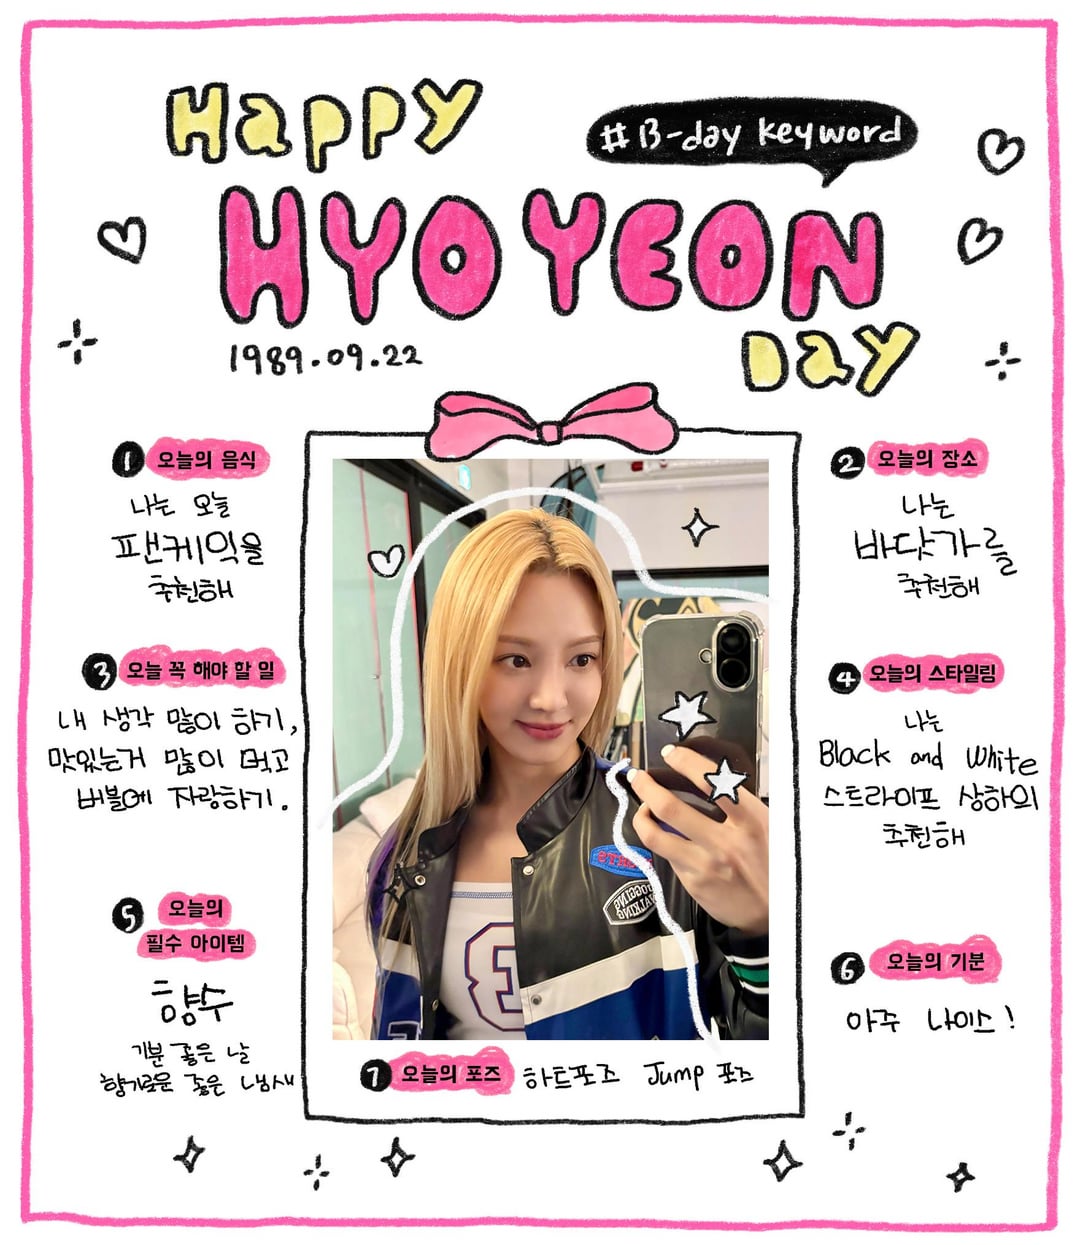 Happy
# B-day keyword
HYOYEON
Day
1989.09.22
1 오늘의 음식
나는 오늘
팬케익을
추천해
2 오늘의 장소
나는
바닷가를
추천해
3 오늘 꼭 해야 할 일
내 생각 많이 하기,
맛있는거 많이 먹고
버블에 자랑하기.
4 오늘의 스타일링
나는
Black and White
스트라이프 상하의
추천해
5 오늘의
필수 아이템
향수
기분 좋은 날
향기로운 좋은 냄새
6 오늘의 기분
아주 나이스!
7 오늘의 포즈 하트포즈 Jump 포즈